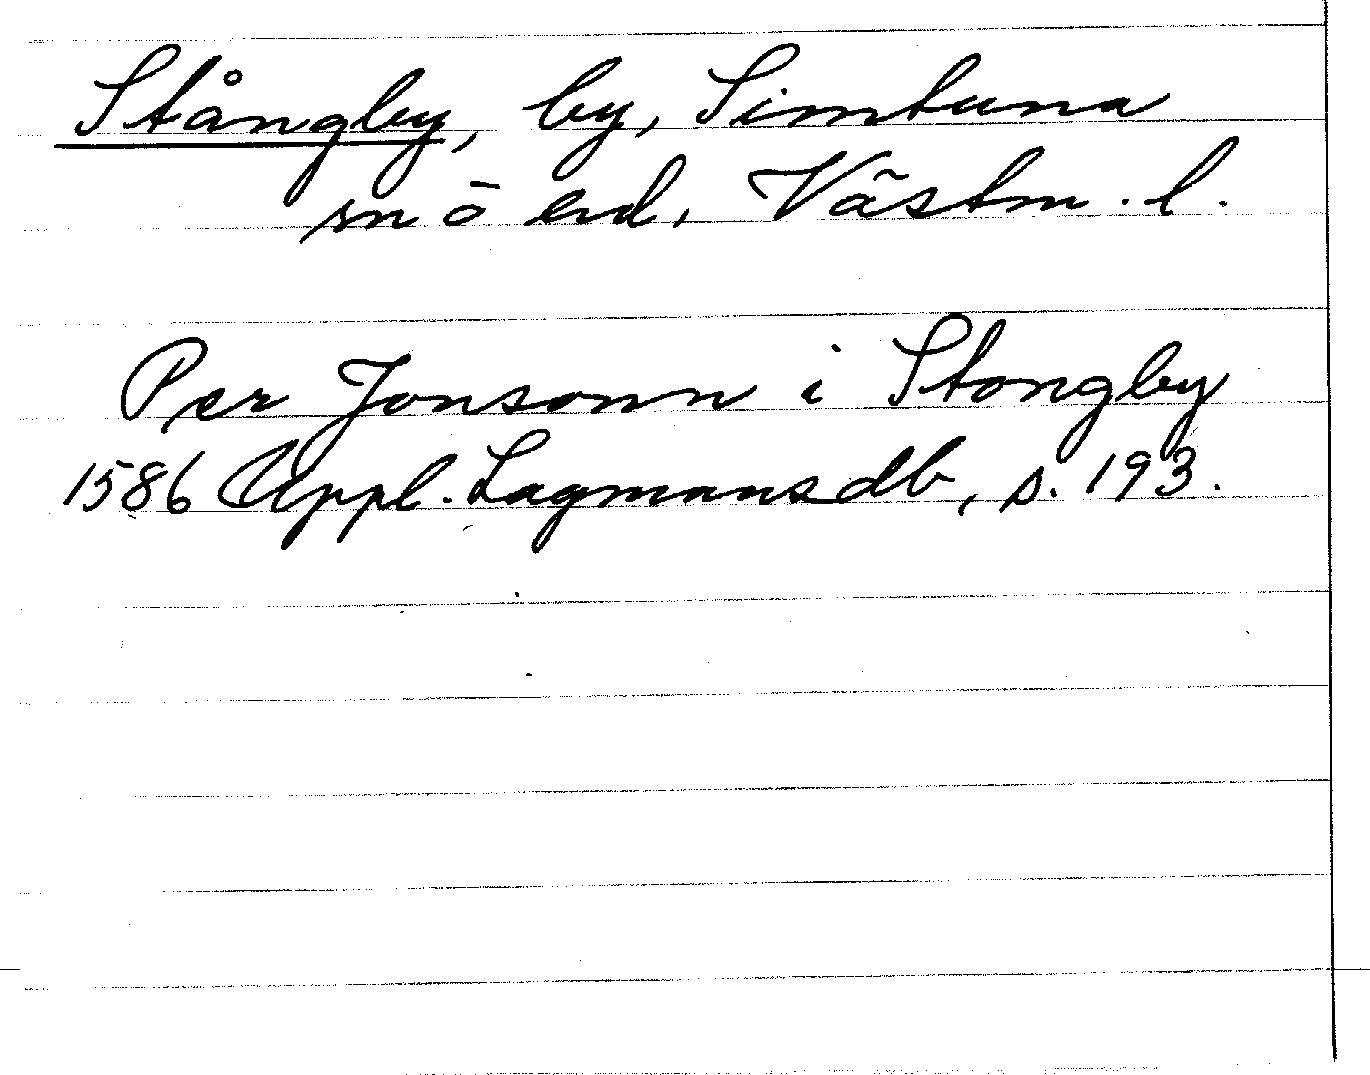 Stångby, by, Simtuna
sn o hd, Västm. l.
Per Jonsonn i Stongby
1586 Uppl. Lagmansdb, s. 193.